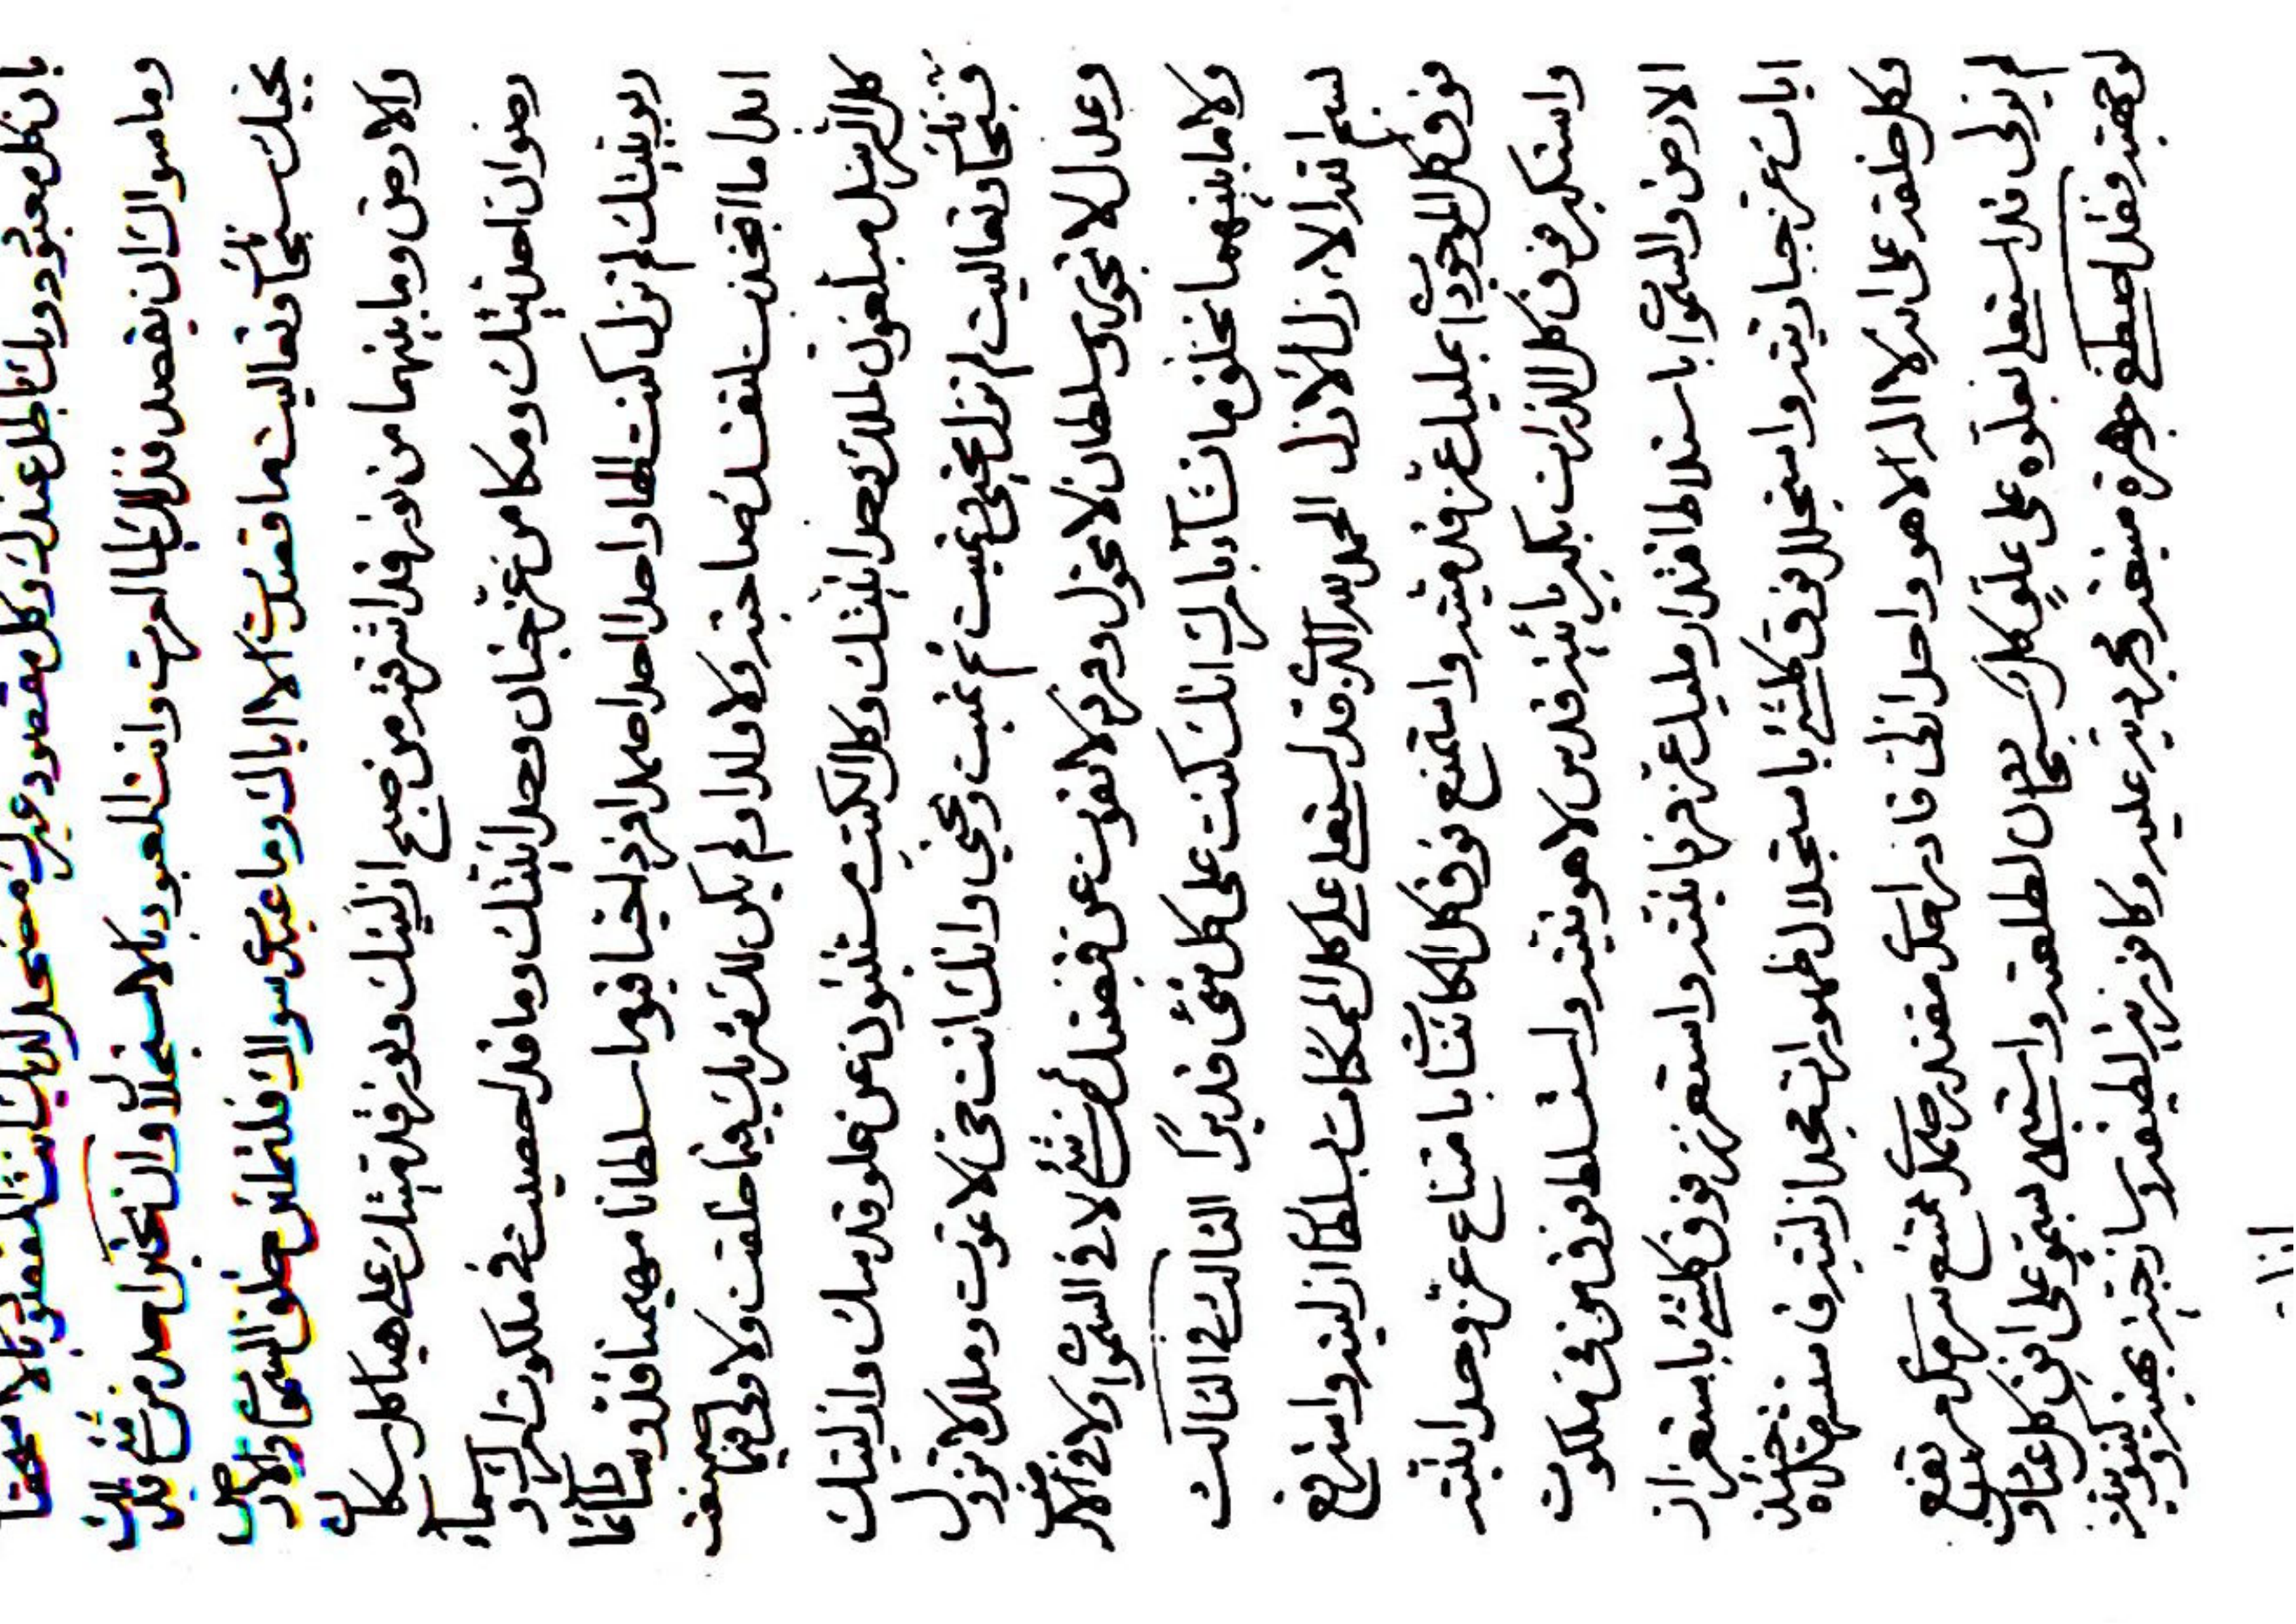 بان كل معبود دونك باطل عندك وكل مقصود غيرك مضمحل لديك انت المقصود بالاستحقاق
وما سواك ان يقصد فذلك لما امرت وانت المعبود بالاستجلال وان يخبر احد من شئ فذلك
بحبك سبحانك وتعاليت ما قصدت الا اياك وما عبدت سواك فلتخلقن خلق السموات والارض
والارض وما بينهما من نور قد اشرقته من صبح ازليتك ونور قدمتك على هياكل سكان
رضوان احديتك ومكامن عز جنان وحدانيتك وما قد احصيت في ملكوت امرك وسماء
ربوبيتك لم تزل كنت الها واحدا احدا صمدا فردا حيا قيوما سلطانا مهيمنا قدوسا دائما
ابدا ما اتخذت لنفسك صاحبة ولا ولدا ولم يكن لك شريك فيما خلقت ولا ولي فيما صنعت
كل الرسل مبلغون لملك وحدانيتك وكل الكتب مستنبئون عن علو قدسك وازليتك
فسبحانك وتعاليت لم تزل تحيي وتميت ثم تميت وتحيي وانك انت حي لا تموت وملك لا تزول
وعدل لا تجور وسلطان لا تحول وفرد لا يفوت عن قبضتك من شئ لا في السموات ولا في الارض
ولا ما بينهما تخلق ما تشاء بامرك انك كنت على كل شئ قديرا الثالث في الثالث
بسم الله الازل الازل الحمد لله الذي قد استعلى على كل الممكنات بسلطان ازليته واسترفع
فوق كل الموجودات بمليك عز قدميته واستمنع فوق كل الكائنات بامتناع عز وحدانيته
واستكبر فوق كل الذرات بكبريائية قدس لاهوتيته واستسلط فوق من في ملكوت
الارض والسموات باستلاط اقتدار مليك عز فردانيته واستعزز فوق كلشئ باستعزاز
ايات عز جباريته واستجلل فوق كلشئ باستجلال ظهورات مجد ازليته فاستشهده حينئذ
وكل خلقه على انه لا اله الا هو واحدا اولي قادرا حكم مقتدر صمد ممتنع سرمد مرتفع
لم يزل قد استعلى بعلوه على علو كل سبحان لطلعته واستسمى بسموه على افق كل عناوين
لوجهته فقد اصطفى جوهرة منيعة مجردية علية وكافورية لطيفة وساذجية بهية وكينونية